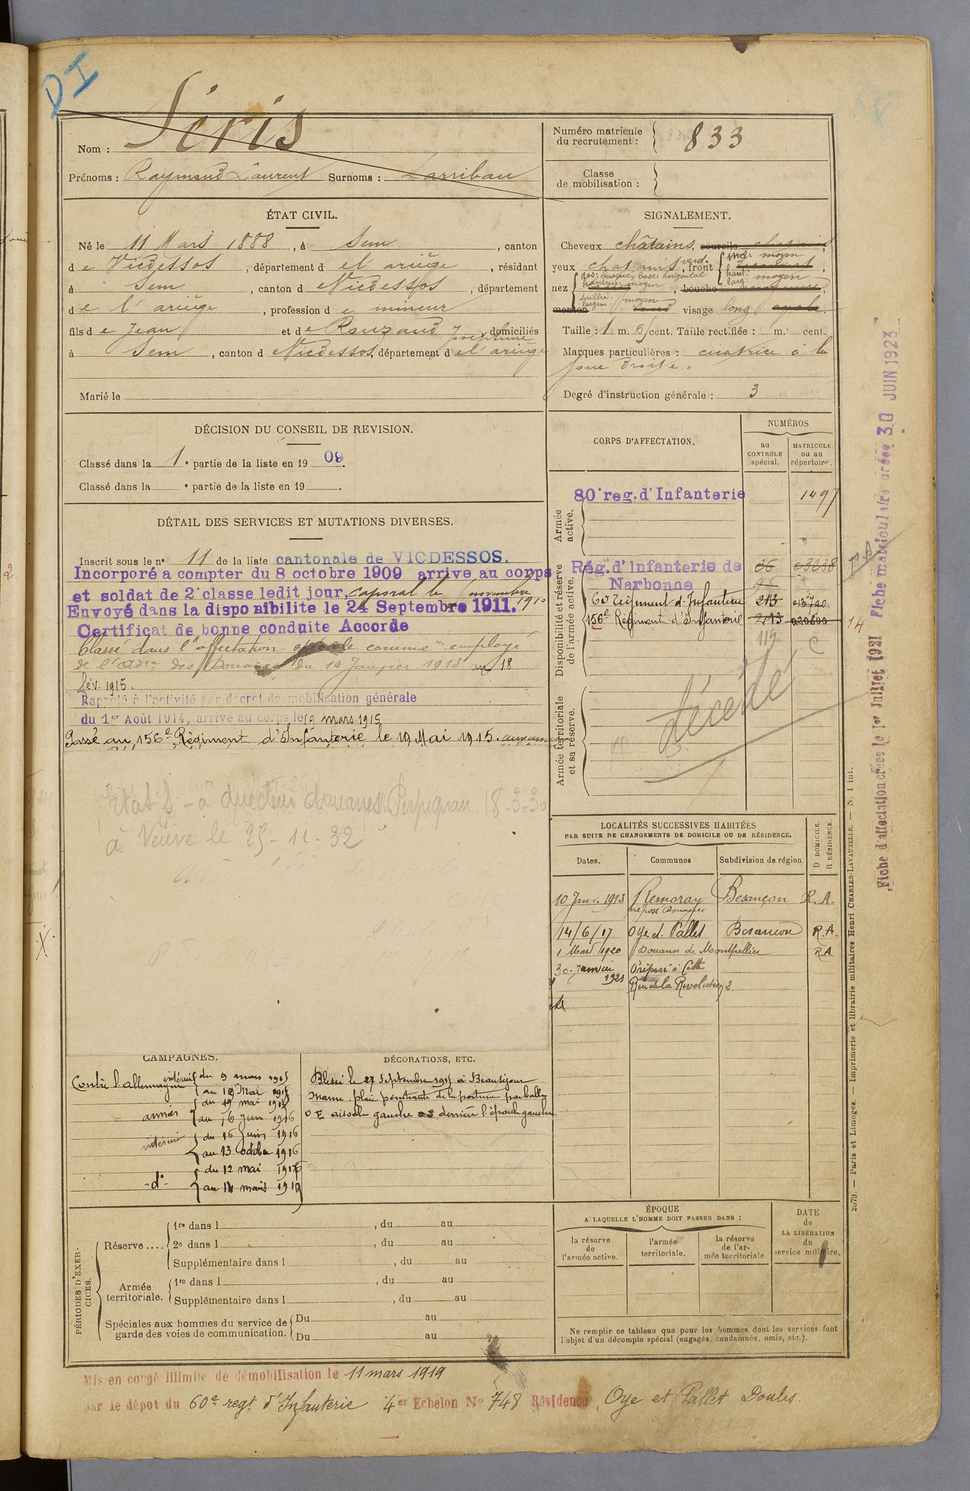 DI
Nom : Séris
Prénoms : Raymond Laurent Surnoms : Larribau
Numéro matricule du recrutement : 833
Classe de mobilisation :
ÉTAT CIVIL.
Né le 11 Mars 1888, à Sem, canton
de Vicdessos, département de l'ariège, résidant
à Sem, canton de Vicdessos, département
de l'ariège, profession de mineur
fils de Jean et de Rouzaud Joséphine, domiciliés
à Sem, canton de Vicdessos, département de l'ariège
Marié le
SIGNALEMENT.
Cheveux châtains, sourcils
yeux chatains verd., front moyen
nez dos: busqué, base: horizontal
moyen bouche
menton visage long
Taille : 1 m. 6 cent. Taille rectifiée : m. cent.
Marques particulières : cicatrice à la
joue droite.
Degré d'instruction générale : 3
DÉCISION DU CONSEIL DE REVISION.
Classé dans la 1e partie de la liste en 1909.
Classé dans la e partie de la liste en 19 .
DÉTAIL DES SERVICES ET MUTATIONS DIVERSES.
Inscrit sous le n° 11 de la liste cantonale de VICDESSOS.
Incorporé a compter du 8 octobre 1909 arrive au corps
et soldat de 2e classe ledit jour, caporal le novembre 1910
Envoyé dans la disponibilite le 24 Septembre 1911.
Certificat de bonne conduite Accorde
Classé dans l'affectation spéciale comme employé
de l'adon des Douanes du 10 Janvier 1913 au 18
fév. 1915.
Rappelé à l'activité par décret de mobilisation générale
du 1er Août 1914, arrivé au corps le 9 mars 1915
Passé au 156e Régiment d'Infanterie le 19 Mai 1915.
Etat S - à directeur douanes Perpignan 18-3-30
à Veuve le 25-11-32
CORPS D'AFFECTATION.
NUMÉROS
au CONTROLE spécial.
MATRICULE ou au répertoire.
Armée active.
80e reg. d'Infanterie 1497
Disponibilité et réserve de l'armée active.
Rég. d'Infanterie de
Narbonne
60 Régiment d'Infanterie 213
156e Régiment d'Infanterie 213 020600
Armée territoriale et sa réserve.
décédé
14
Fiche d'affectation créée le 1er Juillet 1921
Fiche matriculaire créée 30 JUIN 1923
LOCALITÉS SUCCESSIVES HABITÉES
PAR SUITE DE CHANGEMENTS DE DOMICILE OU DE RÉSIDENCE.
Dates. Communes Subdivision de région. D DOMICILE. R RÉSIDENCE.
10 Janv. 1913 Remoray Besançon R.A.
préposé Douanes
14/6/17 Oye et Pallet Besancon R.A.
1 Mai 1920 Douanes de Montpellier R.A.
30 Janvier 1921 Préposé à Cette
Rue de la Révolution 2.
CAMPAGNES.
Contre l'allemagne
intérieur du 9 mars 1915
au 18 Mai 1915
armées du 19 mai 1915
au 15 juin 1916
intérieur du 16 juin 1916
au 13 octobre 1916
-d°- du 12 mai 1917
au 14 mars 1919
DÉCORATIONS, ETC.
Blessé le 27 Septembre 1915 à Beauséjour
Marne. plaie pénétrante de la poitrine par balle
O E aisselle gauche O S derrière l'épaule gauche
PÉRIODES D'EXERCICES.
Réserve .... 1re dans l , du au
2e dans l , du au
Supplémentaire dans l , du au
Armée territoriale. 1re dans l , du au
Supplémentaire dans l , du au
Spéciales aux hommes du service de garde des voies de communication. Du au
Du au
ÉPOQUE
A LAQUELLE L'HOMME DOIT PASSER DANS :
la réserve de l'armée active.
l'armée territoriale.
la réserve de l'armée territoriale
DATE de LA LIBÉRATION du service militaire.
Ne remplir ce tableau que pour les hommes dont les services font
l'objet d'un décompte spécial (engagés, condamnés, omis, etc.).
2079. — Paris et Limoges. — Imprimerie et librairie militaires Henri CHARLES-LAVAUZELLE. — N. 1 int.
Mis en congé illimité de démobilisation le 11 mars 1919
par le dépot du 60e regt d'Infanterie 4er Echelon No 748 Résidence Oye et Pallet Doubs